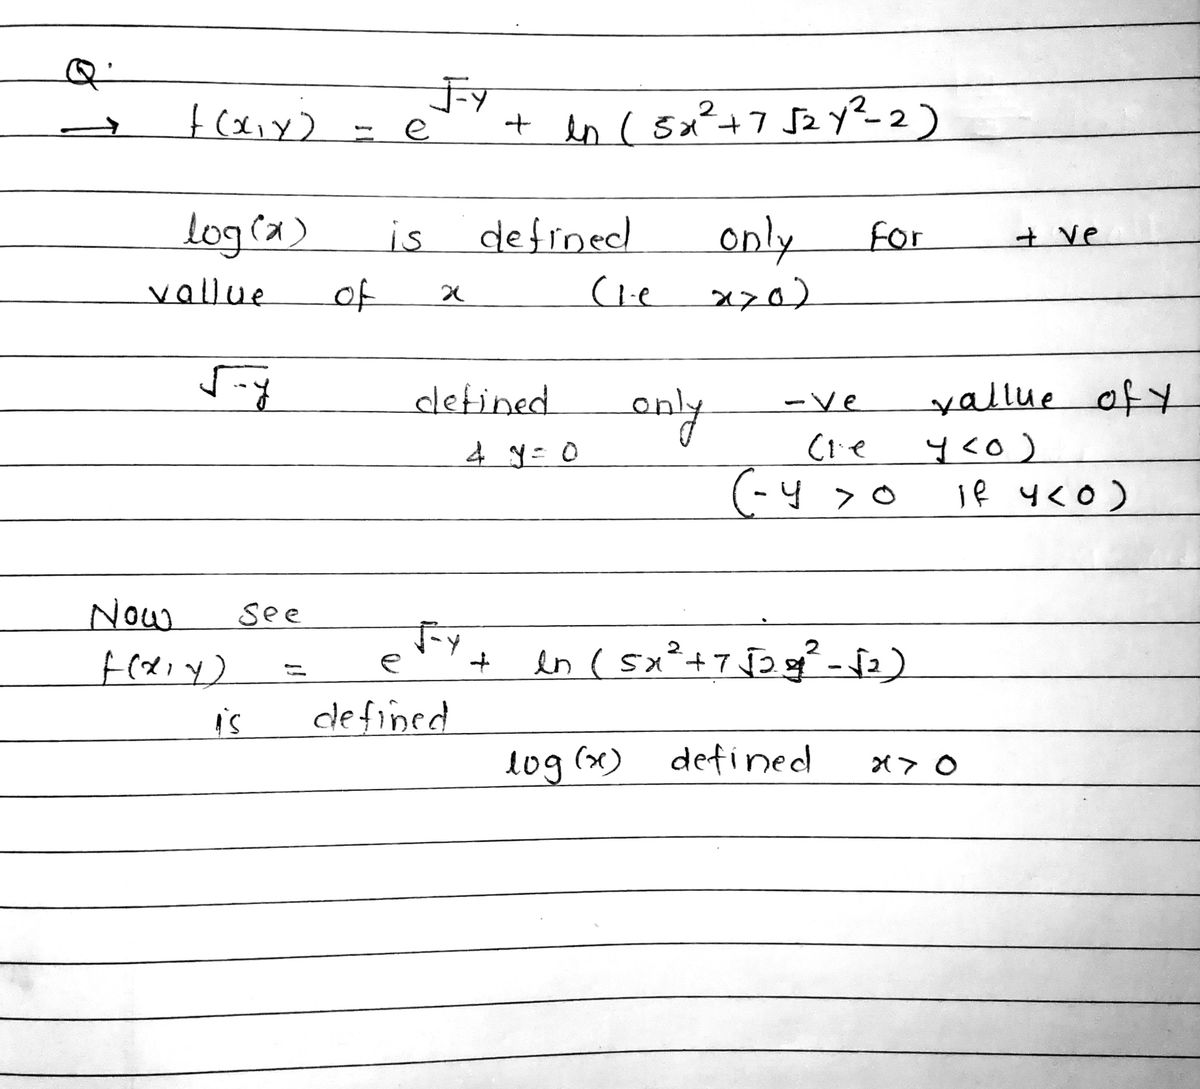 Q.
→ f(x,y) = e^√-y + ln ( 5x²+7 √2 y²-2 )
log(x) is defined only For + ve
vallue of x (i.e x>0)
√-y defined only -ve vallue of y
& y=0 (i.e y<0)
(-y > 0 if y<0)
Now see
f(x,y) = e^√-y + ln ( 5x²+7√2 y²-√2)
is defined
log (x) defined x> 0